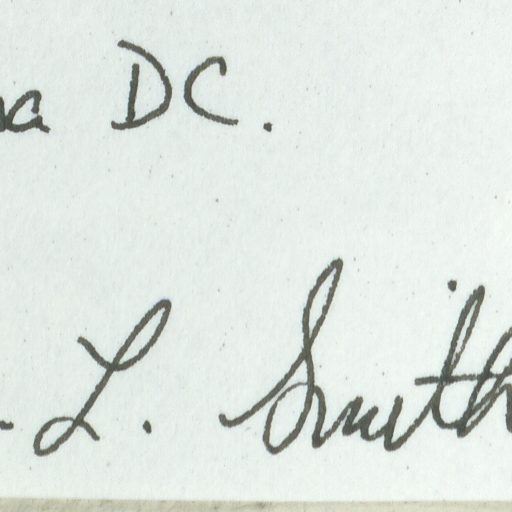 DC.
L. Smith